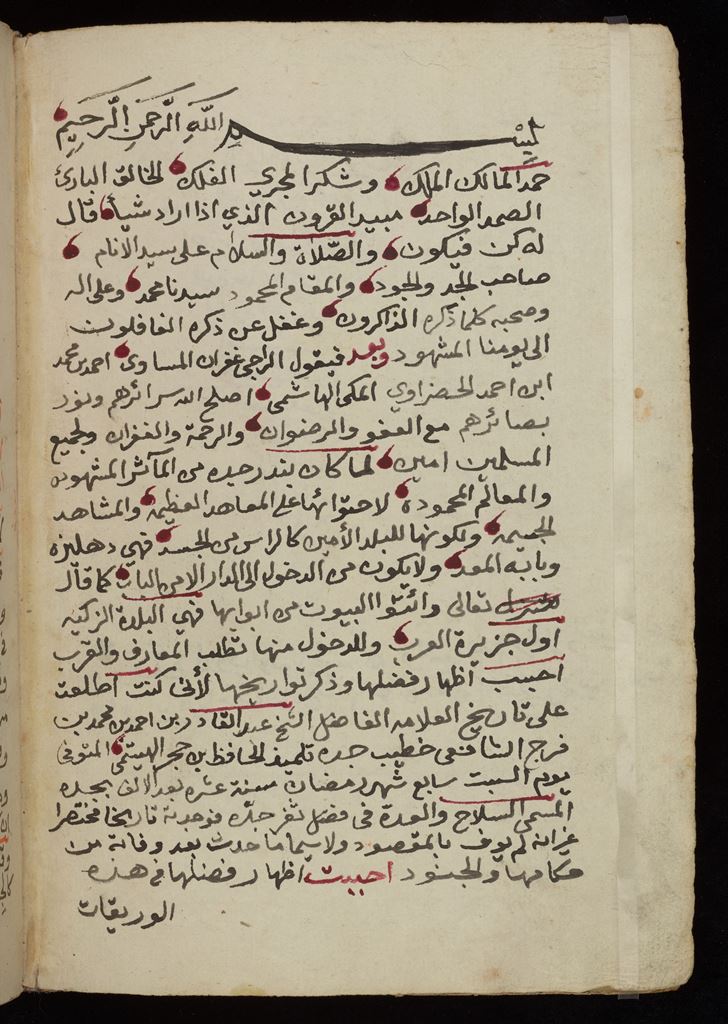 بسم الله الرحمن الرحيم
حمدا لمالك الملك وشكرا لمجري الفلك الخالق البارئ
الصمد الواحد مبيد القرون الذي اذا اراد شيأ قال
له كن فيكون والصلاة والسلام على سيد الانام
صاحب المجد والجود والمقام المحمود سيدنا محمد وعلى اله
وصحبه كلما ذكره الذاكرون وغفل عن ذكره الغافلون
الى يومنا المشهود وبعد فيقول الراجي غفران المساوي احمد بن محمد
ابن احمد الحضراوي المكي الهاشمي اصلح الله سرائرهم ونور
بصائرهم مع العفو والرضوان والرحمة والغفران ولجميع
المسلمين امين لما كان بندر جده من المآثر المشهوده
والمعالم المحمودة لاحتوائها على المعاهد العظيمه والمشاهد
الجسيمه ولكونها للبلد الأمين كالراس من الجسد فهي دهليزه
وبابه المعد ولا يكون من الدخول الى الدار الا من الباب كما قال
تعالى وائتوا البيوت من ابوابها فهي البلدة الزكيه
اول جزيرة العرب وللدخول منها تطلب المعارف والقرب
احببت اظهار فضلها وذكر تواريخها لأني كنت اطلعت
على تاريخ العلامه الفاضل الشيخ عبد القادر بن احمد بن محمد بن
فرج الشافعي خطيب جده تلميذ الحافظ بن حجر الهيتمي المتوفى
يوم السبت سابع شهر رمضان سنة عشره بعد الالف بجده
المسمى السلاح والعدة في فضل ثغر جده فوجدته تاريخا مختصرا
غير انه لم يوف بالمقصود ولا سيما ما حدث بعد وفاته من
حكامها والجنود احببت اظهار فضلها في هذه
الوريقات